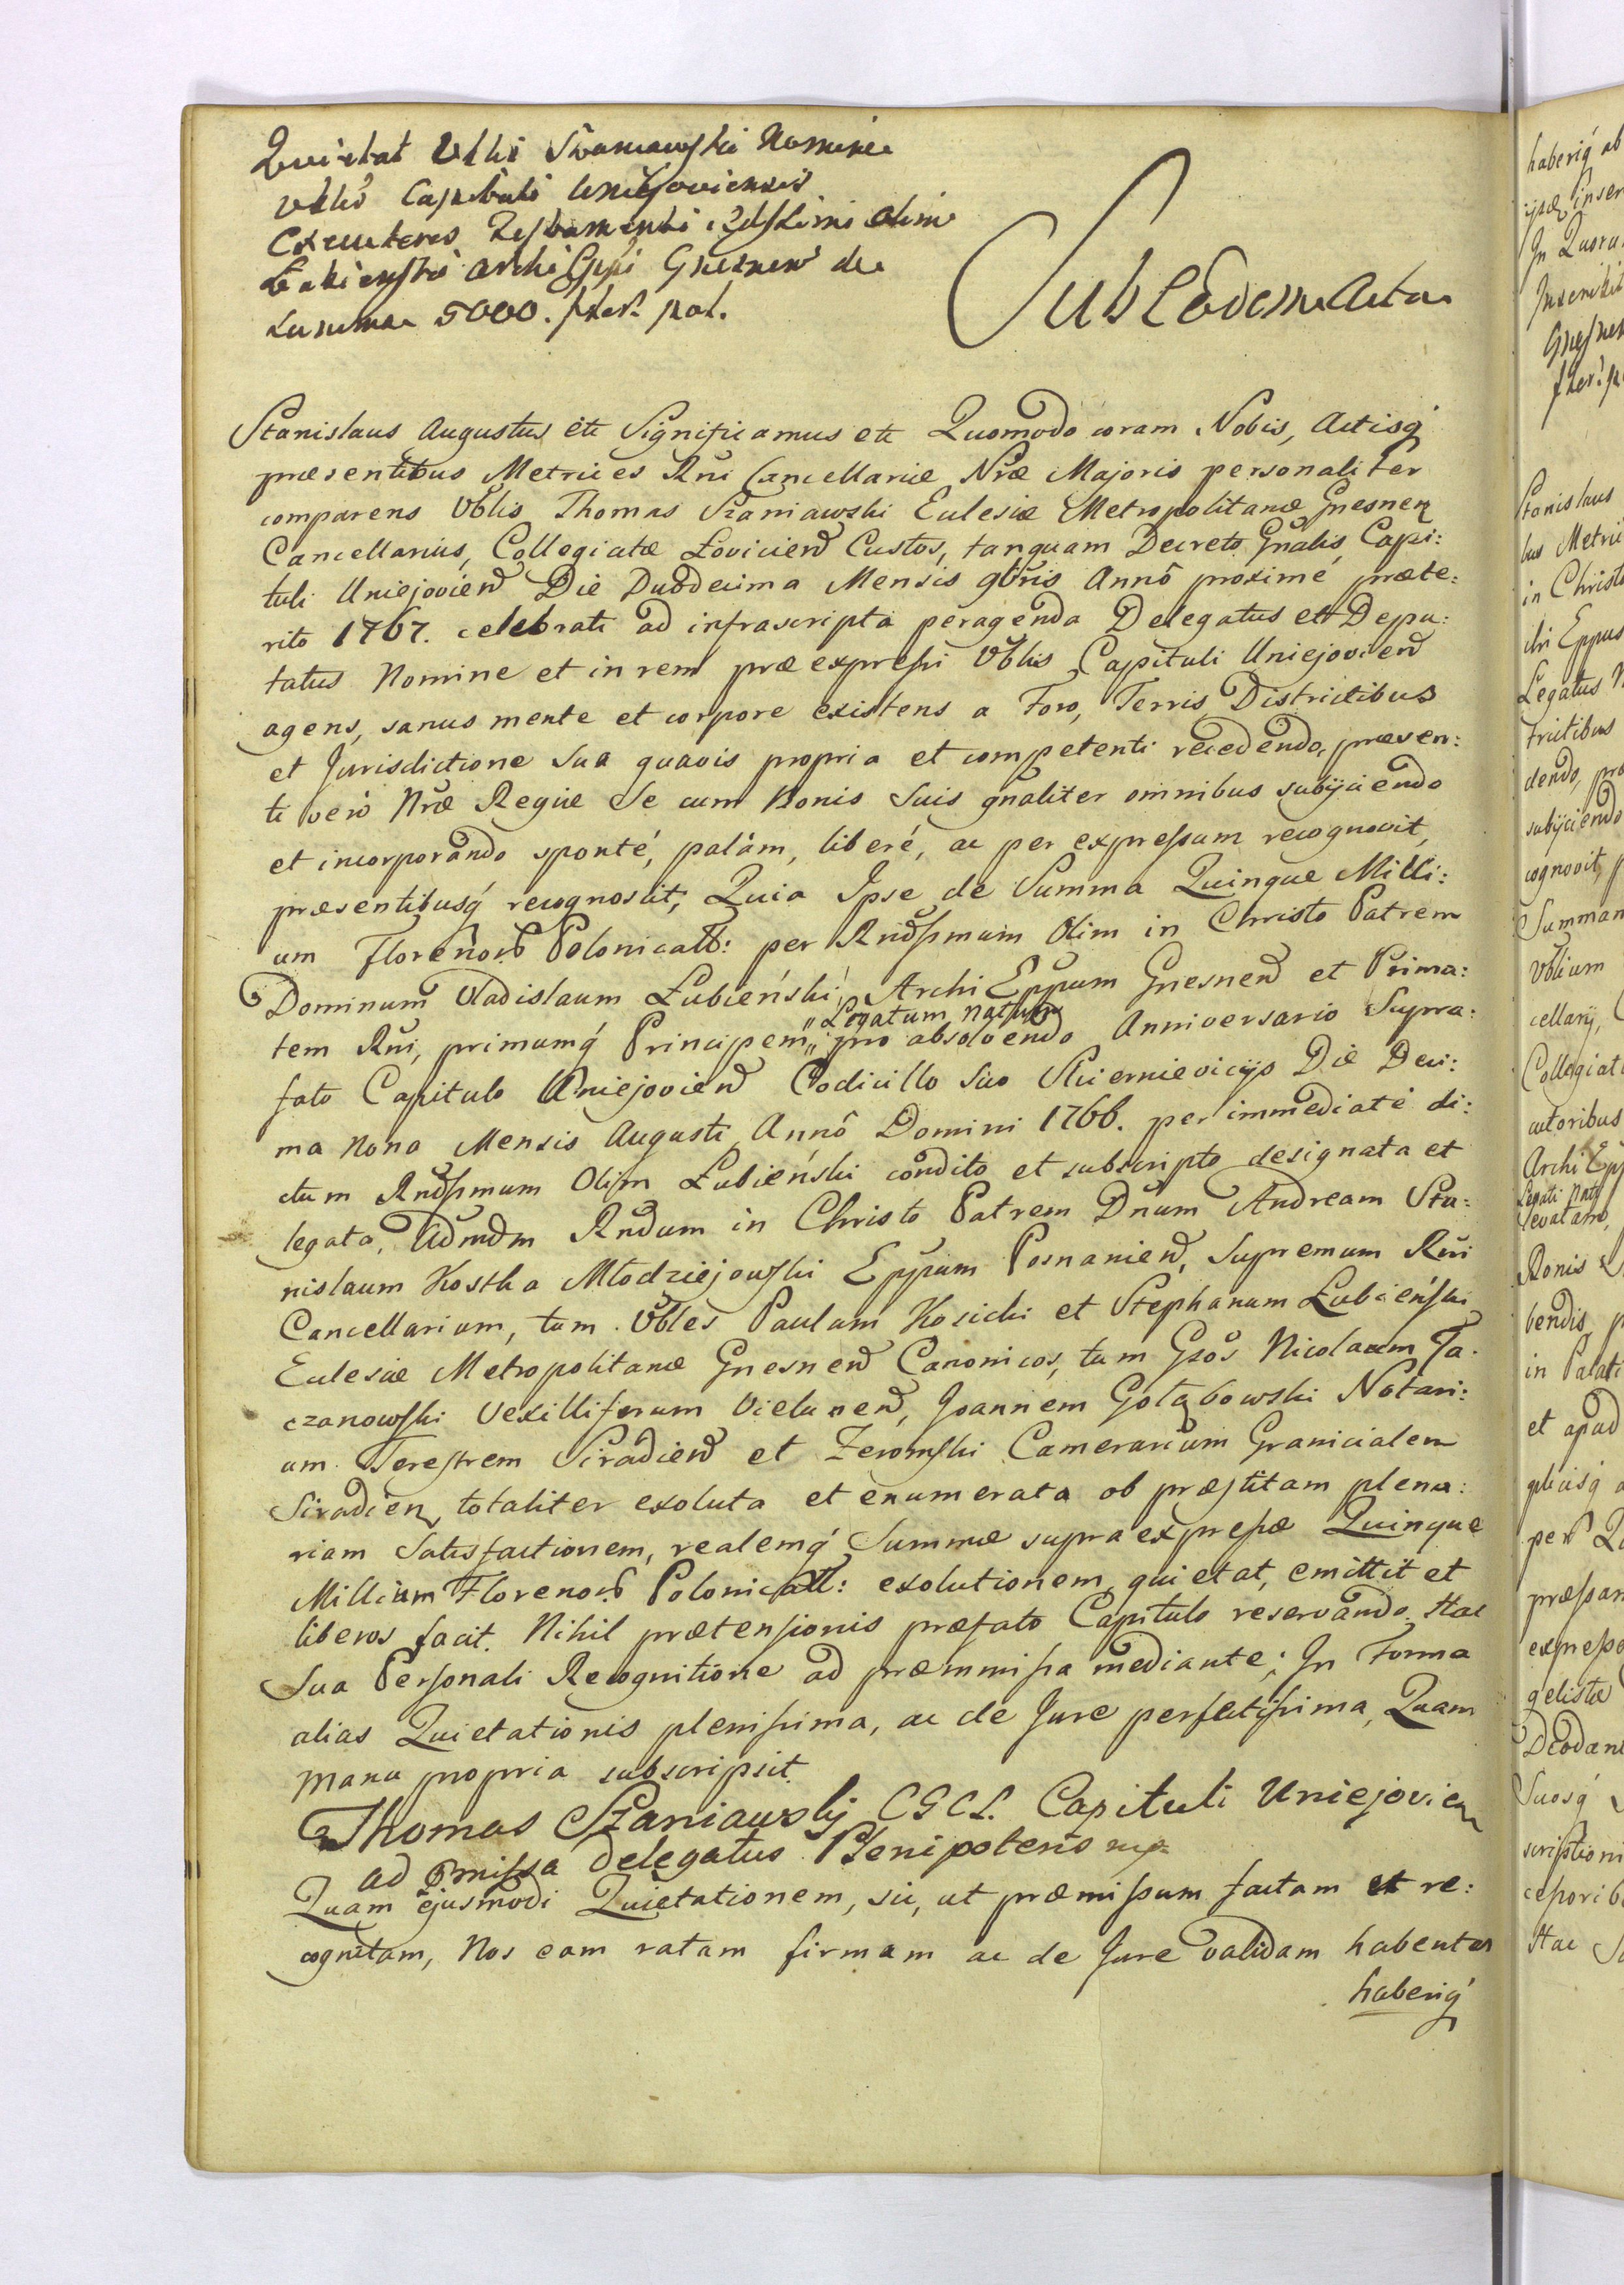 Quietat Vblis Szaniawski Nomine
Vblis Capituli Uniejoviensis
Executores Testamenti Celssimi olim
Łubienski Archi Eppi Gnesnen de
summa 5000. flor. pol.
Sub Eadem Acta
Stanislaus Augustus ett Significamus ett Quomodo coram Nobis, Actisq́
præsentibus Metrices Rni Cancellariæ Nræ Majoris personaliter
comparens Vblis Thomas Szaniawski Eclesiæ Metropolitanæ Gnesnen
Cancellarius, Collegiatæ Łoviciens Custos, tanquam Decreto Gñalis Capi:
tuli Uniejovien Die Duodecima Mensis 9bris Annô proximé præte:
rito 1767. celebrati ad infrascripta peragenda Delegatus et Depu:
tatus Nomine et in rem præexpressi Vblis Capituli Uniejovien
agens, sanus mente et corpore existens a Foro, Terris Districtibus
et Jurisdictione Sua quavis propria et competenti recedendo, præsen:
ti veró Nræ Regiæ Se cum Bonis Suis gnaliter omnibus subijciendo
et incorporando sponté, palàm, liberé, ac per expressum recognovit,
præsentibusq́ recognoscit, Quia Ipse de Summa Quinque Milli:
um Florenor Polonicall: per Rndssmum Olim in Christo Patrem
Dominum Vladislaum Łubieński, Archi Eppum Gnesnen et Prima:
tem Rni, primumq́ Principem „Legatum Natum„ pro absolvendo Anniversario Supra:
fato Capitulo Uniejovien Codicillo Suo Skiernievicijs Die Deci:
ma Nona Mensis Augusti Annô Domini 1766. per immediaté di:
ctum Rndssmum Olim Łubieński condito et subscripto designata et
legata, Admdm Rndum in Christo Patrem Dnum Andream Sta:
nislaum Kostka Młodziejowski Eppum Posnanien, Supremum Rni
Cancellarium, tum Vbles Paulum Kosicki et Stephanum Łubieński
Eclesiæ Metropolitanæ Gnesnen Canonicos, tum Gsos Nicolaum Ta:
czanowski Vexilliferum Vielunen, Joannem Gołąbowski Notari:
um Terestrem Siradien et Zeromski Camerarium Granicialem
Siradien, totaliter exoluta et enumerata ob præstitam plena:
riam Satisfactionem, realemq́ Summæ supra expressæ Quinque
Millium Florenor Polonicall: exolutionem quietat, emittit et
liberos facit. Nihil prætensionis præfato Capitulo reservando Hac
Sua Personali Recognitione ad præmmissa mediante; In Forma
alias Quietationis plenissima, ac de Jure perfectissima, Quam
manu propria subscripsit.
Thomas Szaniawskj CGCL. Capituli Uniejovien
ad pmissa Delegatus Plenipotens mp.
Quam ejusmodi Quietationem, sic, ut præmissum factam et re:
cognitam, Nos eam ratam firmam ac de Jure validam habentes
haberiq́